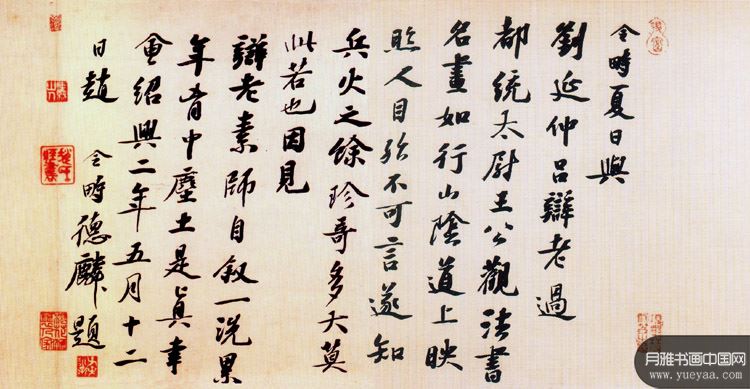 令畤夏日與
劉延仲呂辯老過
都統太尉王公觀法書
名畫如行山陰道上映
照人目殆不可言遂知
兵火之餘珍奇多大莫
此若也因見
辯老素師自叙一洗累
年胷中塵土是真幸
會紹興二年五月十二
日趙 令畤德麟題
月雅书画中国网
www.yueyaa.com